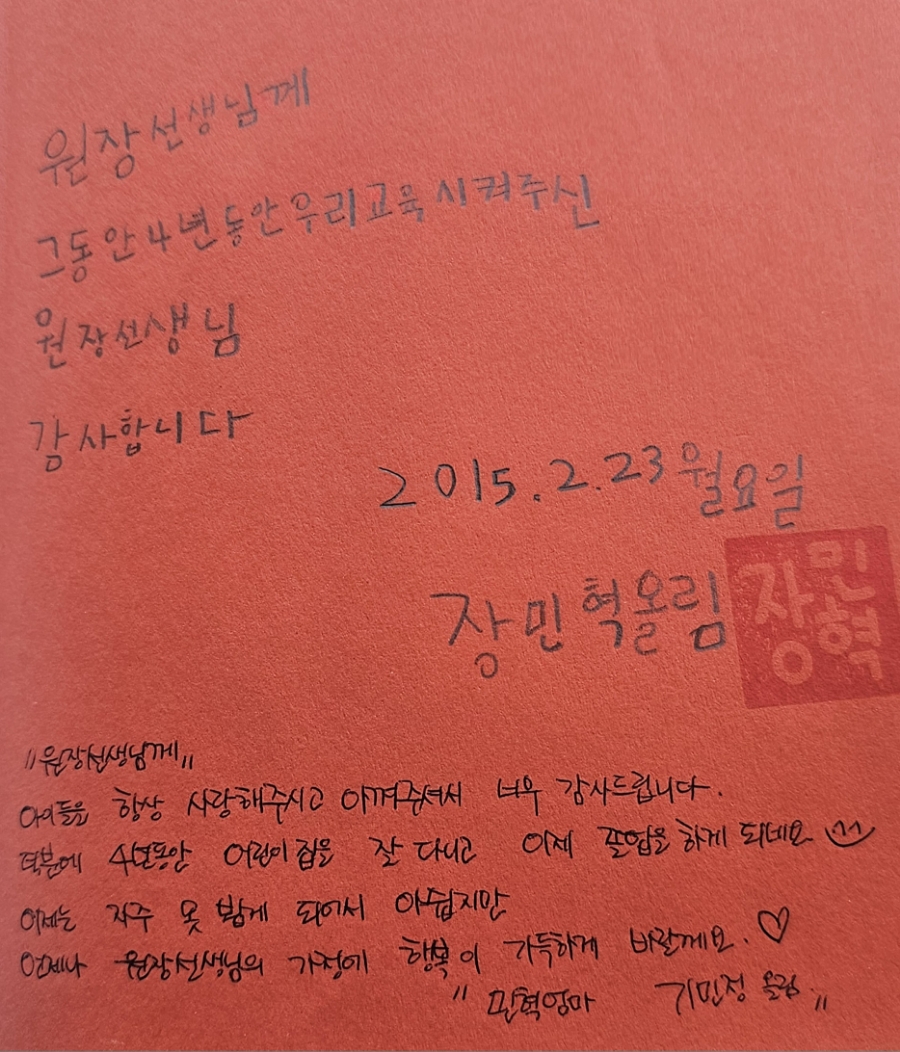 원장선생님께
그동안 4년동안 우리교육시켜주신
원장선생님
감사합니다
2015.2.23 월요일
장민혁올림
장민혁
"원장선생님께"
아이들을 항상 사랑해주시고 아껴주셔서 너무 감사드립니다.
덕분에 4년동안 어린이집을 잘 다니고 이제 졸업을 하게 되네요
이제는 자주 못 뵙게 되어서 아쉽지만
언제나 원장선생님의 가정에 행복이 가득하게 바랄께요. ♡
" 민혁엄마 기민정 올림 "